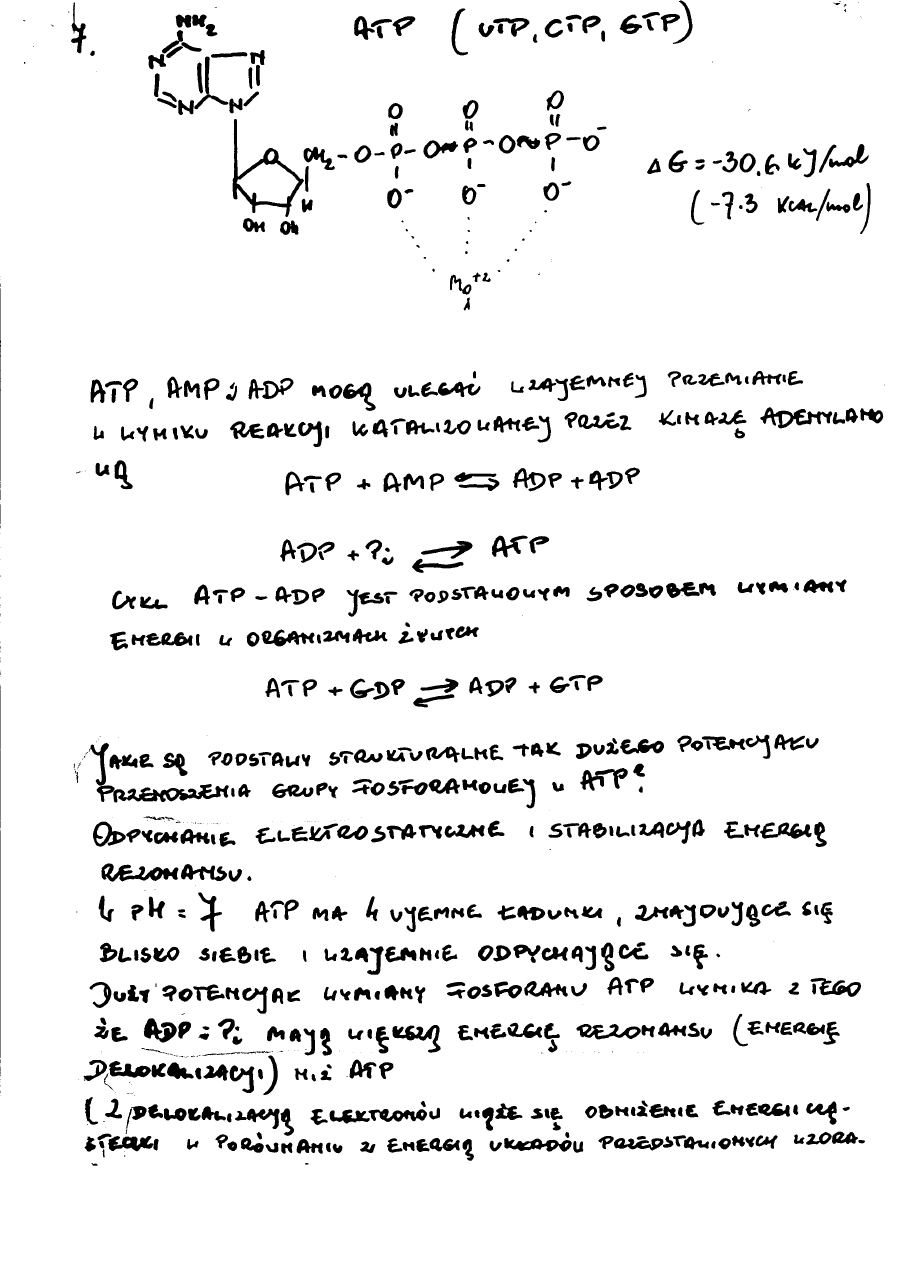 7.
ATP (UTP, CTP, GTP)
NH2
N N
N N
O O O
O CH2-O-P-O~P-O~P-O-
H O- O- O-
OH OH
ΔG = -30.6 kJ/mol
(-7.3 kcal/mol)
Mg+2
ATP, AMP i ADP MOGĄ ULEGAĆ WZAJEMNEJ PRZEMIANIE
W WYNIKU REAKCJI KATALIZOWANEJ PRZEZ KINAZĘ ADENYLANO
WĄ
ATP + AMP ⇆ ADP + ADP
ADP + Pi ⇄ ATP
CYKL ATP-ADP JEST PODSTAWOWYM SPOSOBEM WYMIANY
ENERGII W ORGANIZMACH ŻYWYCH
ATP + GDP ⇄ ADP + GTP
JAKIE SĄ PODSTAWY STRUKTURALNE TAK DUŻEGO POTENCJAŁU
PRZENOSZENIA GRUPY FOSFORANOWEJ W ATP?
ODPYCHANIE ELEKTROSTATYCZNE I STABILIZACJA ENERGIĄ
REZONANSU.
W pH = 7 ATP MA 4 UJEMNE ŁADUNKI, ZNAJDUJĄCE SIĘ
BLISKO SIEBIE I WZAJEMNIE ODPYCHAJĄCE SIĘ.
DUŻY POTENCJAŁ WYMIANY FOSFORANU ATP WYNIKA Z TEGO
ŻE ADP i Pi MAJĄ WIĘKSZĄ ENERGIĘ REZONANSU (ENERGIĘ
DELOKALIZACJI) NIŻ ATP
(Z DELOKALIZACJĄ ELEKTRONÓW WIĄŻE SIĘ OBNIŻENIE ENERGII CZĄ-
STECZKI W PORÓWNANIU Z ENERGIĄ UKŁADÓW PRZEDSTAWIONYCH WZORA-